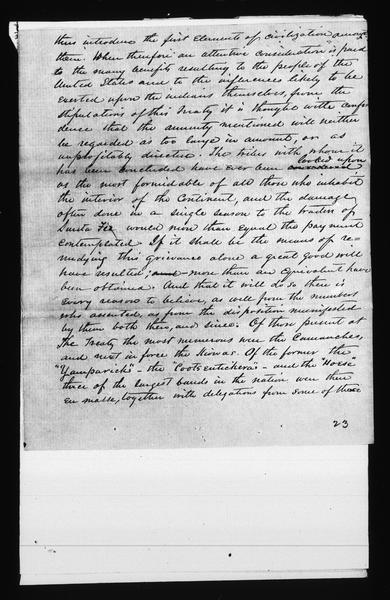 thus introduce the first Elements of civilization among
them. When therefore an attentive consideration is paid
to the many benefits resulting to the people of the
United States and to the influences likely to be
exerted upon the indians themselves, from the
stipulations of this Treaty it is thought with confi-
dence that the annuity mentioned will neither
be regarded as too large in amount, or as
unprofitably directed. The tribes with whom it
looked upon
has been concluded have ever been considered
as the most formidable of all those who inhabit
the interior of the Continent, and the damage
often done in a single season to the traders of
Santa Fee would more than equal the payment
contemplated. If it shall be the means of re-
medying this grievance alone a great good will
have resulted; and more than an Equivalent have
been obtained. And that it will do so there is
Every reason to believe, as well from the numbers
who assented, as from the disposition manifested
by them both then, and since. Of those present at
The Treaty the most numerous were the Camanches,
and next in force the Kiowas. Of the former the
"Yamparick" - the "Cootsentickera" - and the "Horse"
three of the largest bands in the nation were there
en masse, together with delegations from some of those
23